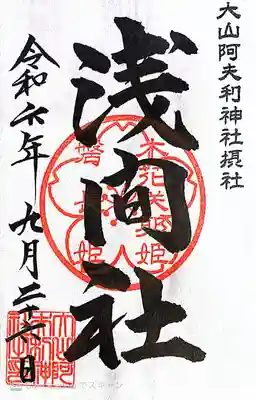 大山阿夫利神社摂社
浅間社
木花咲耶姫
磐長姫
令和六年 九月二十六日